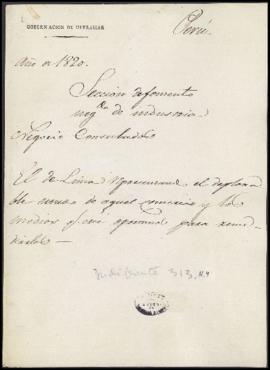 GOBERNACION DE ULTRAMAR
Perú.
Año de 1820.
Seccion de fomento
negdo de industria
Negocio Consulados
El de Lima representa el deplora
ble estado de aquel comercio y los
medios q. cree oportunos para reme-
diarlo —
Indiferente 313, N.4